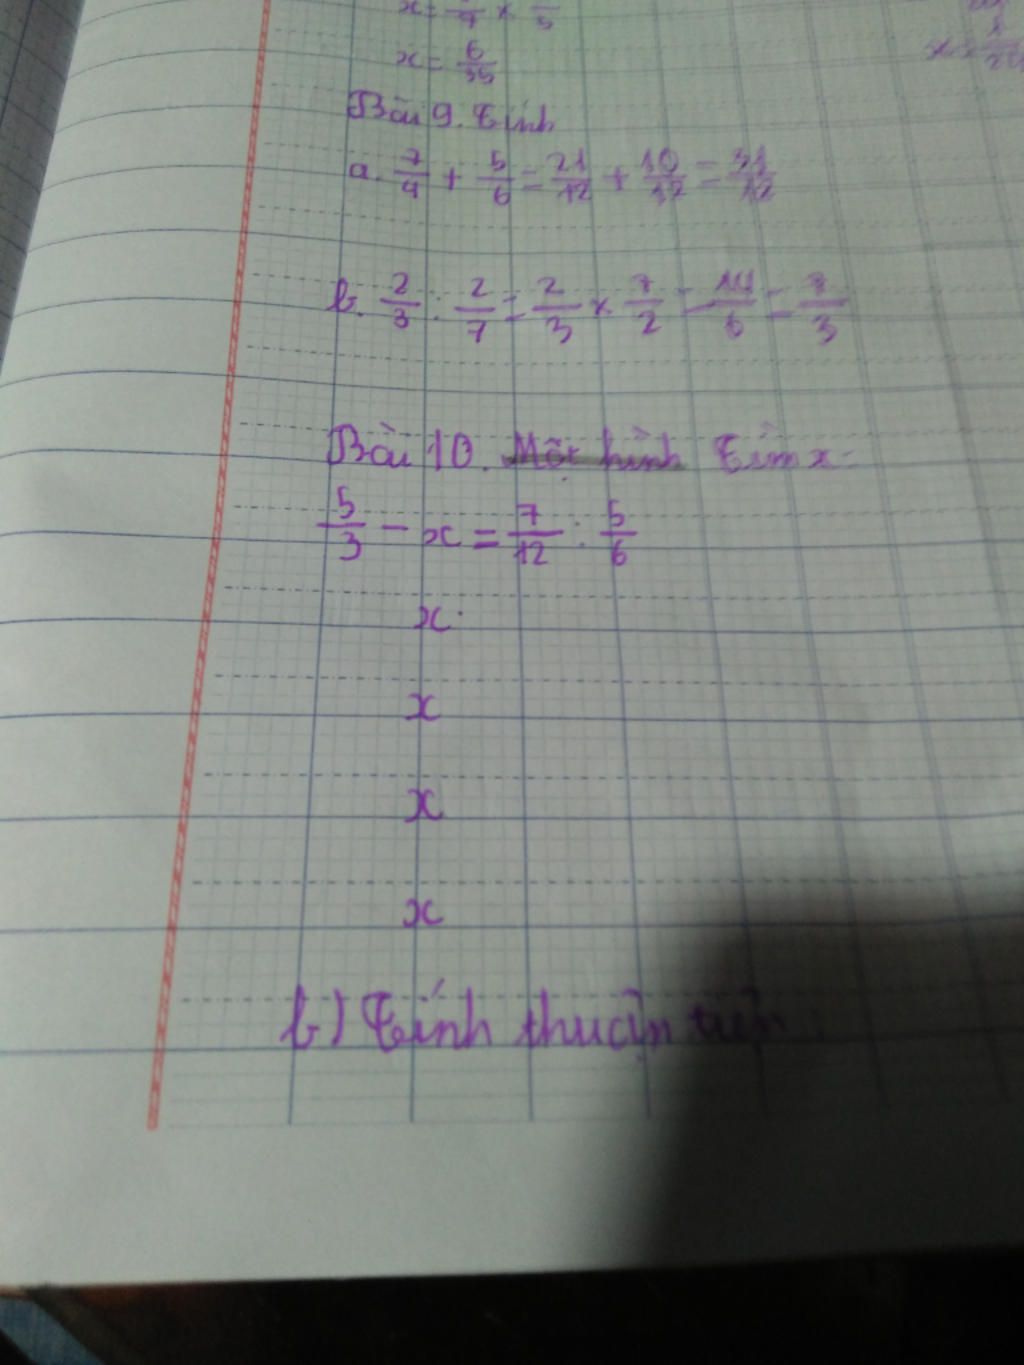 x = 6/35
Bài 9. Tính
a. 7/4 + 5/6 = 21/12 + 10/12 = 31/12
b. 2/3 : 2/7 = 2/3 × 7/2 = 14/6 = 7/3
Bài 10. Một hình Tìm x:
5/3 - x = 7/12 : 5/6
x
x
x
x
b) Tính thuận tiện: